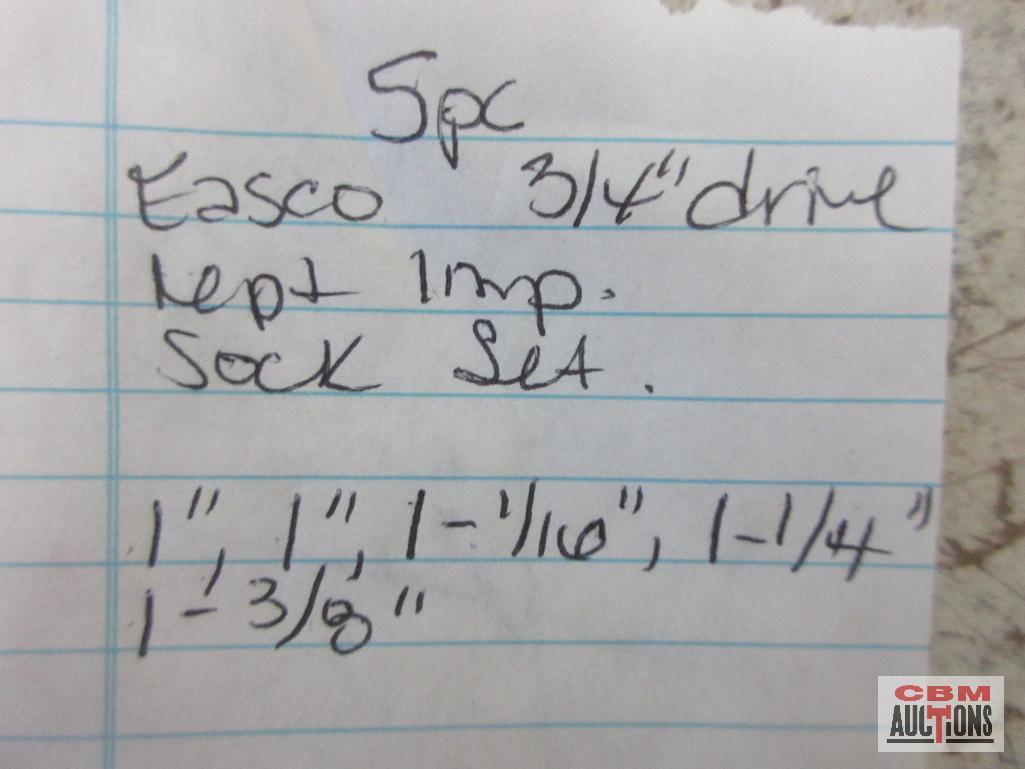 5pc
Easco 3/4" drive
6ept Imp.
Sock Set.
1", 1", 1-1/16", 1-1/4"
1-3/8"
CBM
AUCTIONS